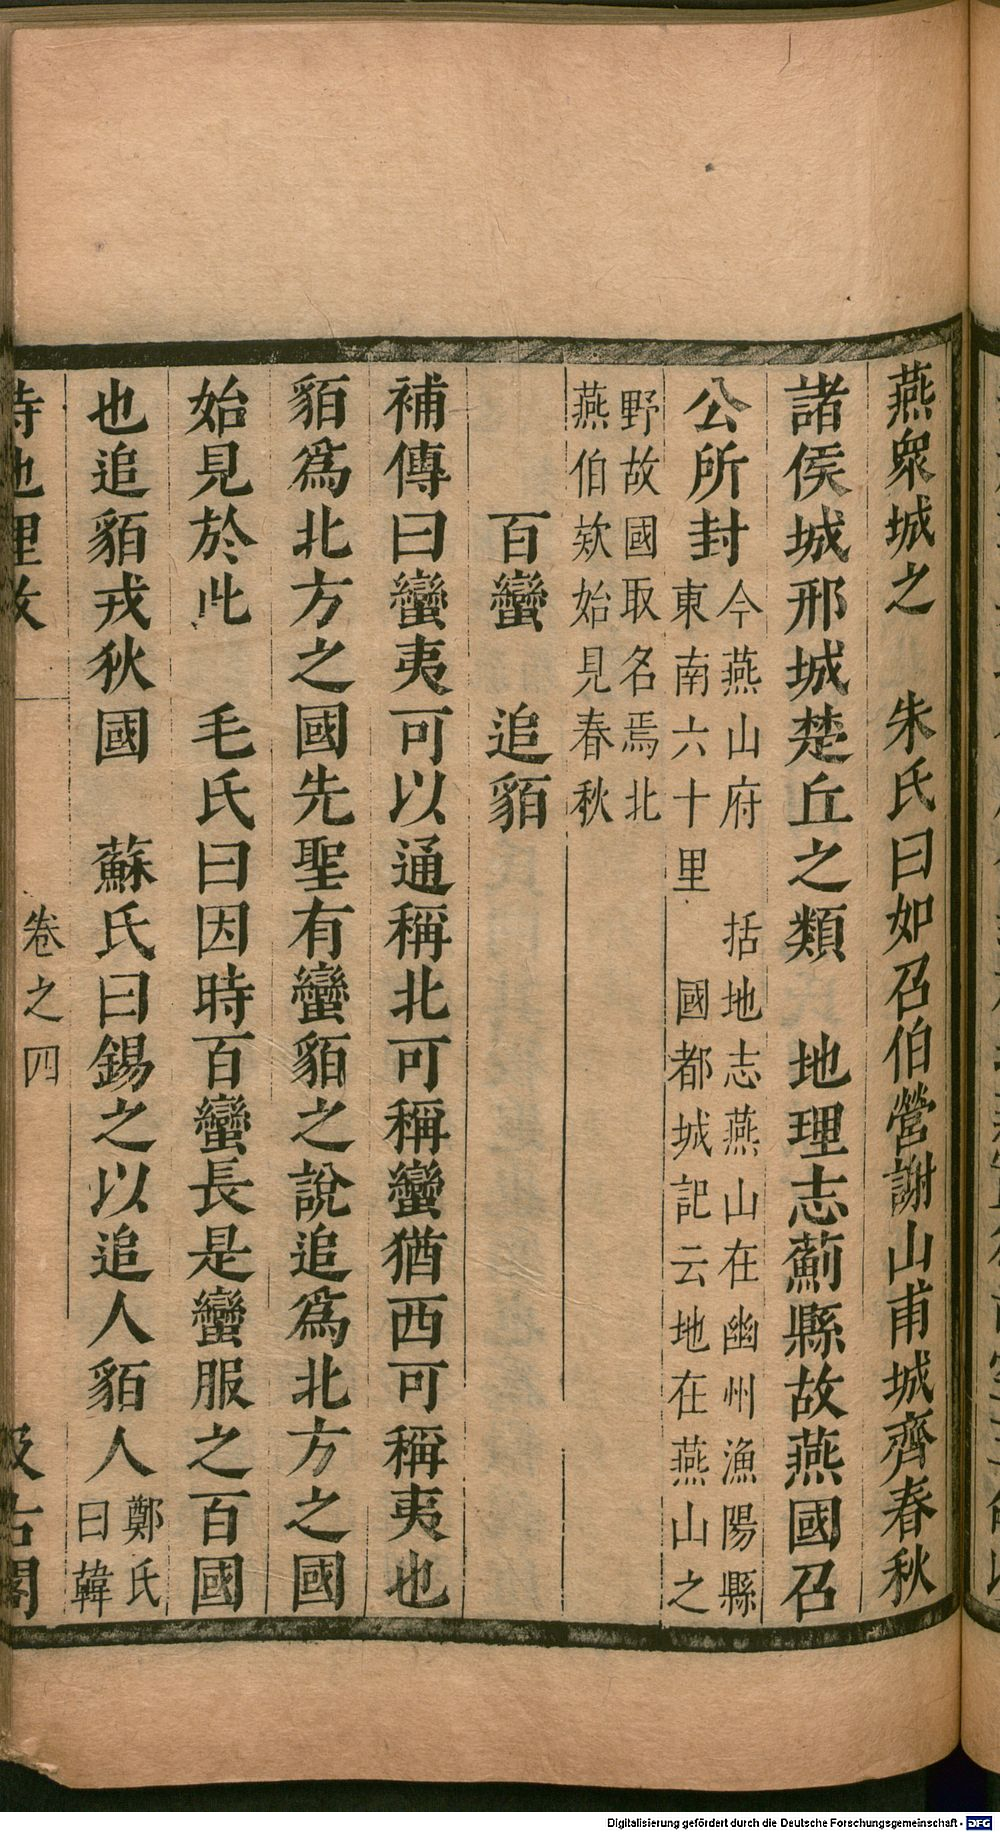 燕衆城之　朱氏曰如召伯營謝山甫城齊春秋
諸侯城邢城楚丘之類　地理志薊縣故燕國召
公所封
今燕山府　括地志燕山在幽州漁陽縣
東南六十里　國都城記云地在燕山之
野故國取名焉北
燕伯欵始見春秋
百蠻　追貊
補傳曰蠻夷可以通稱北可稱蠻猶西可稱夷也
貊爲北方之國先聖有蠻貊之說追爲北方之國
始見於此　毛氏曰因時百蠻長是蠻服之百國
也追貊戎狄國　蘇氏曰錫之以追人貊人
鄭氏
曰韓
詩地理攷　卷之四　汲古閣
Digitalisierung gefördert durch die Deutsche Forschungsgemeinschaft - DFG